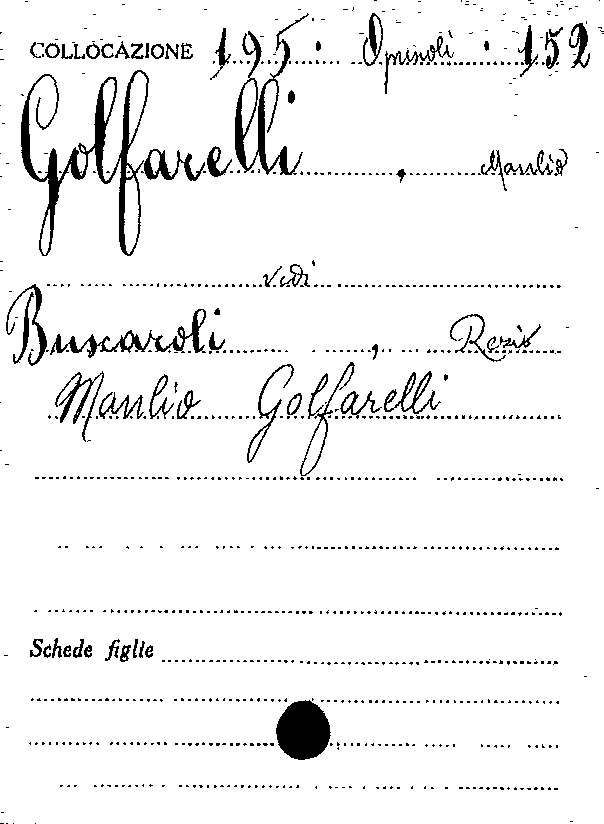 COLLOCAZIONE 195. Opuscoli. 152
Golfarelli, Manlio
vedi
Buscaroli, Rezio
Manlio Golfarelli
Schede figlie